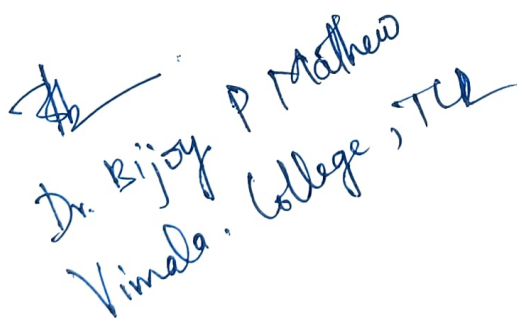 Dr. Bijoy P Mathew
Vimala. College, TCR